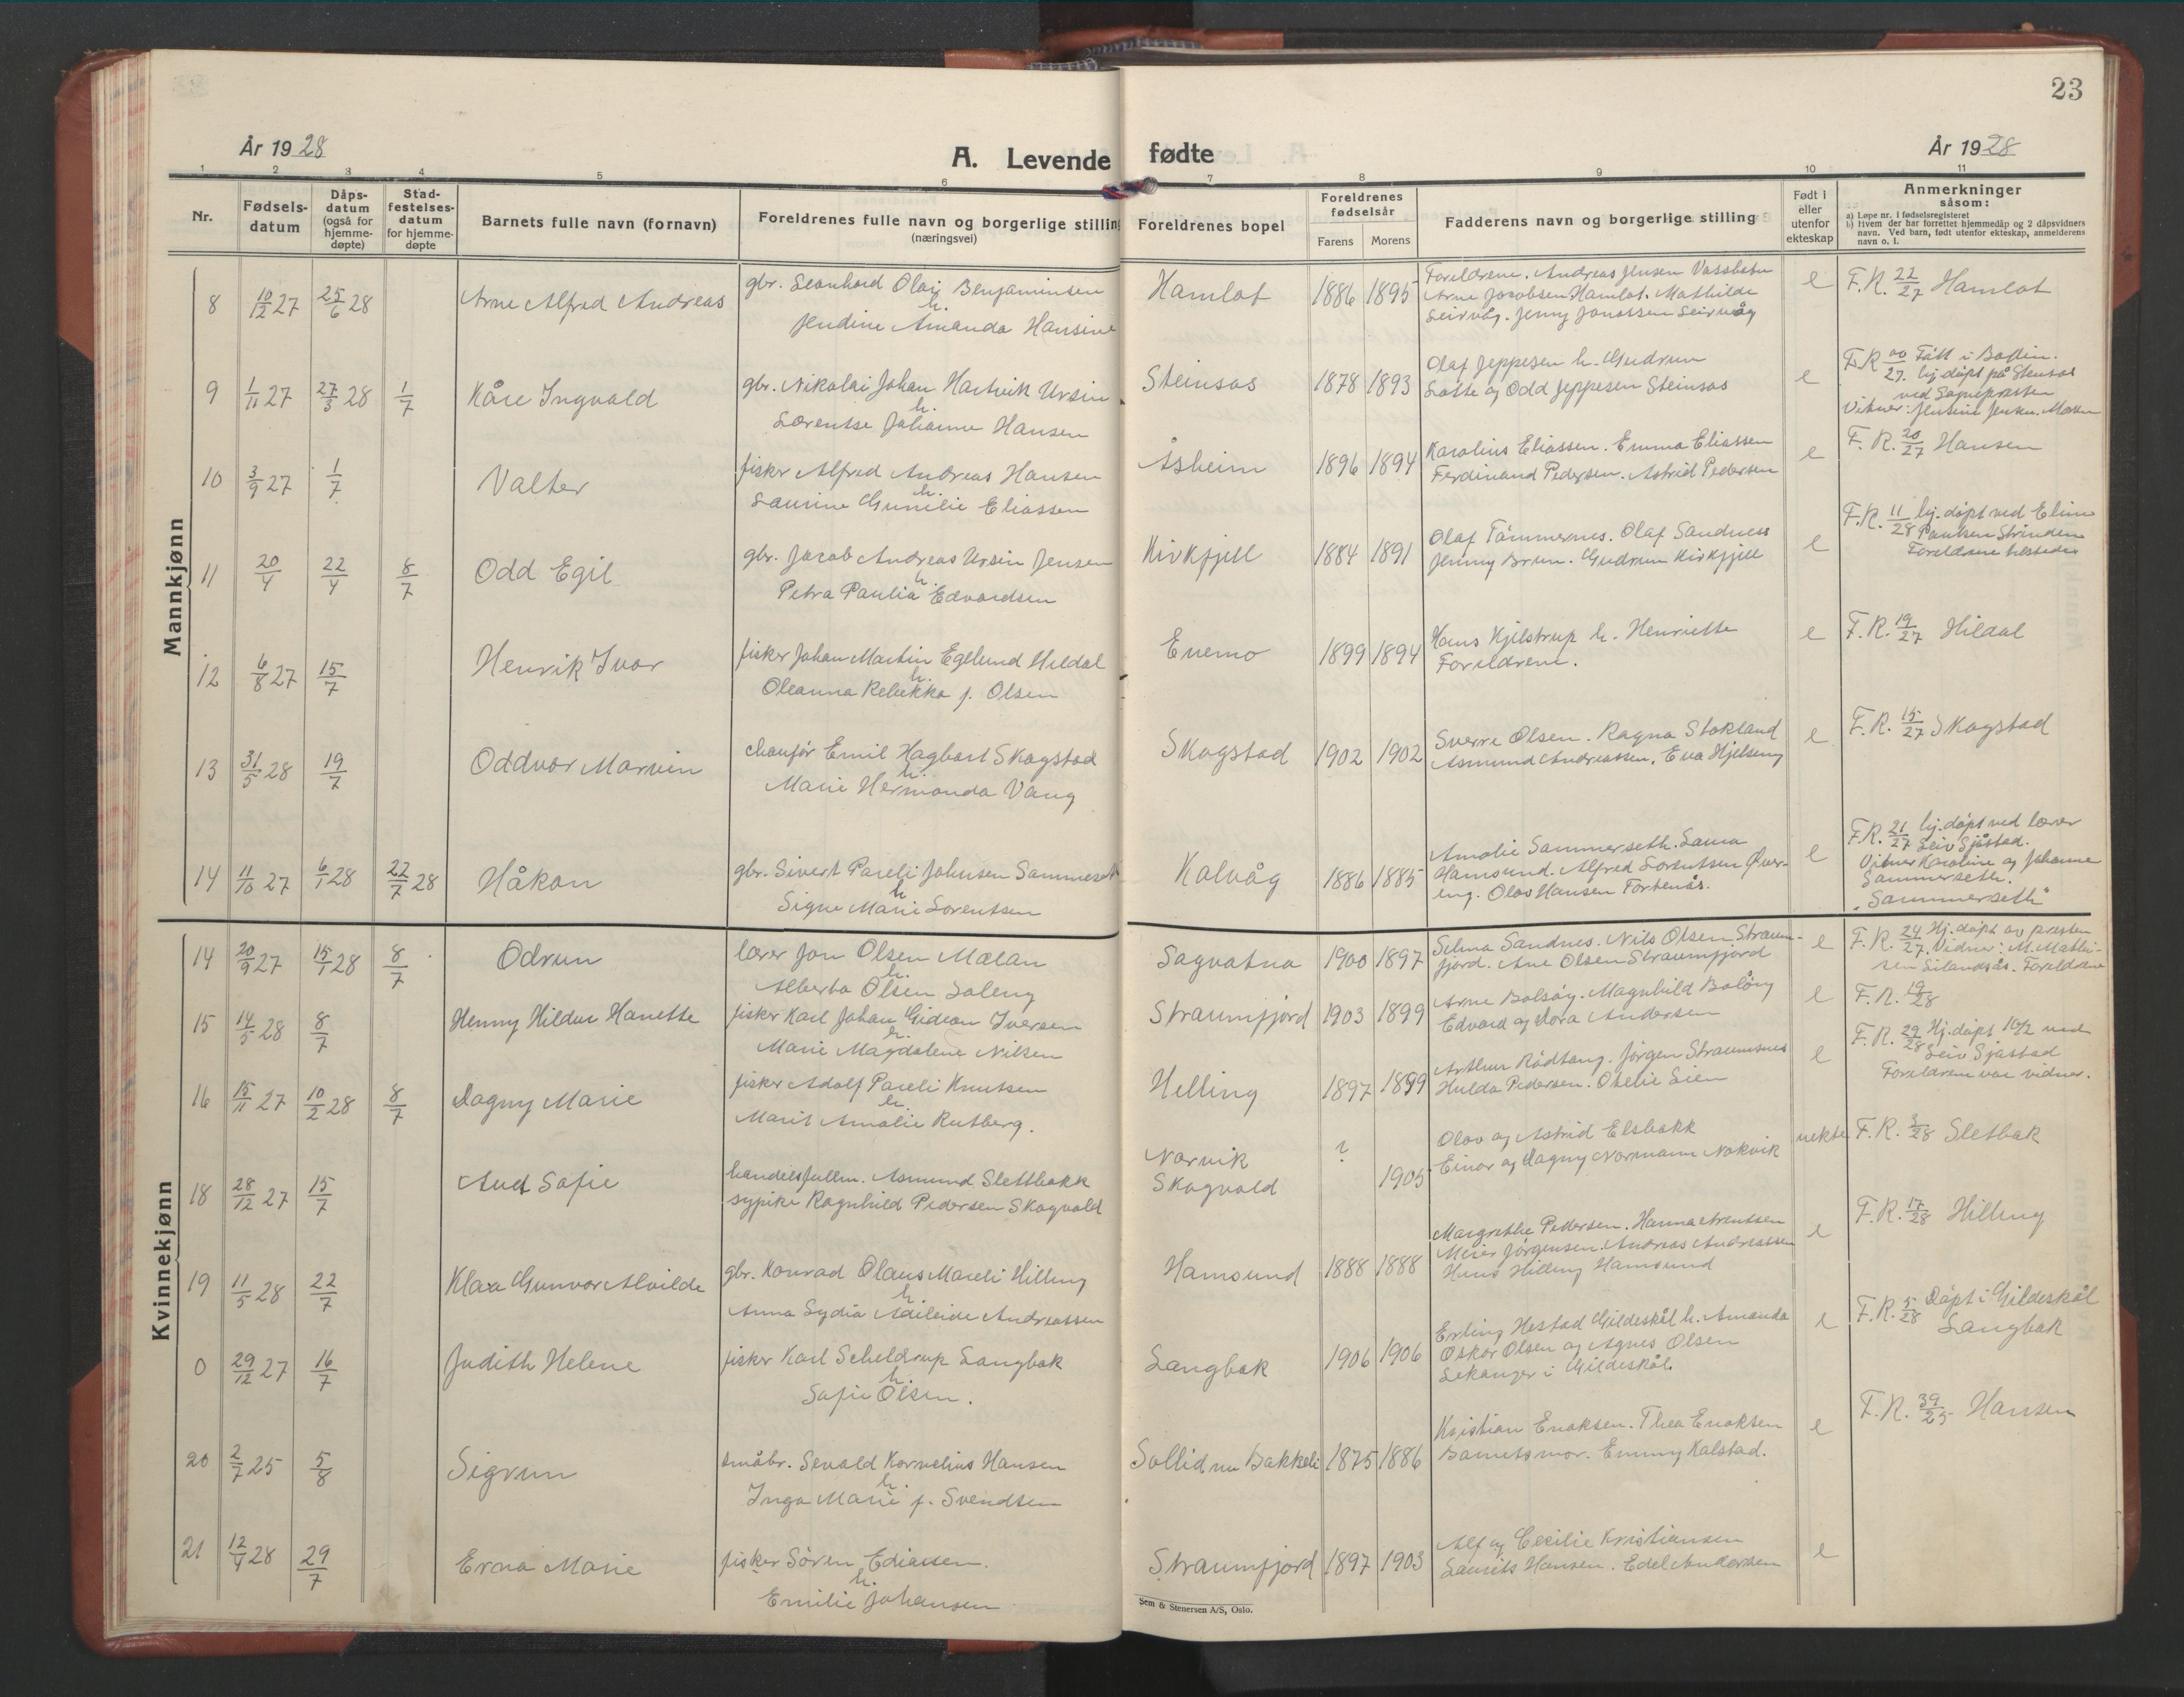 23
År 1928
A. Levende fødte
År 1928
1 2 3 4 5 6 7 8 9 10 11
Nr.
Fødsels-
datum
Dåps-
datum
(også for
hjemme-
døpte)
Stad-
festelses-
datum
for hjemme-
døpte
Barnets fulle navn (fornavn)
Foreldrenes fulle navn og borgerlige stilling
(næringsvei)
Foreldrenes bopel
Foreldrenes
fødselsår
Farens
Morens
Fadderens navn og borgerlige stilling
Født i
eller
utenfor
ekteskap
Anmerkninger
såsom:
a) Løpe nr. i fødselsregisteret
b) Hvem der har forrettet hjemmedåp og 2 dåpsvidners
navn. Ved barn, født utenfor ekteskap, anmelderens
navn o. l.
Mannkjønn
8 10/12 27 25/6 28 Arne Alfred Andreas
gbr. Leonhard Olai Benjaminsen
h.
Jendine Amanda Hansine
Hamlot 1886 1895
Foreldrene. Andreas Jensen Vassbotn
Arne Jacobsen Hamlot. Mathilde
Leirvåg. Jenny Jonassen Leirvåg
e F.R. 22/27 Hamlot
9 1/11 27 27/3 28 1/7 Kåre Ingvald
gbr. Nikolai Johan Hartvik Ursin
h.
Lorentse Johanne Hansen
Steinsos 1878 1893
Olaf Jeppesen h. Gudrun
Lotte og Odd Jeppesen Steinsos
e F.R. 00/27. Født i Bodin.
hj. døpt på Steinsos
ved Sogneprесten
Vidner: Jensine Jensen.
10 3/9 27 1/7 Valter
fisker Alfred Andreas Hansen
h.
Laurine Gunelie Eliassen
Åsheim 1896 1894
Karolius Eliassen. Emma Eliassen
Ferdinand Pedersen. Astrid Pedersen
e F.R. 20/27 Hansen
11 20/4 22/4 8/7 Odd Egil
gbr. Jacob Andreas Ursin Jensen
h.
Petra Paulia Edvardsen
Kirkfjell 1884 1891
Olaf Tømmernes. Olaf Sandnes
Jenny Brun. Gudrun Kirkfjell
e F.R. 11/28 hj. døpt ved Eline
Paulsen Strinden
Foreldrene tilstede
12 6/8 27 15/7 Henrik Ivar
fisker Johan Martin Egelund Hildal
h.
Oleanna Rebekka f. Olsen
Enemo 1899 1894
Hans Kjelstrup h. Henriette
Foreldrene.
e F.R. 19/27 Hildal
13 31/5 28 19/7 Oddvar Marvin
chaufør Emil Hagbart Skogstad
h.
Marie Hermanda Vang
Skogstad 1902 1902
Sverre Olsen. Ragna Stokland
Asmund Andreassen. Eva Hjelseng
e F.R. 15/27 Skogstad
14 11/10 27 6/1 28 22/7 28 Håkon
gbr. Sivert Pareli Johnsen Sammerseth
h
Signe Marie Lorentsen
Kalvåg 1886 1885
Amalie Sammerseth. Laura
Hamsund. Alfred Lorentsen Øver-
eng. Olav Hansen Fortenås.
e F.R. 21/27 hj. døpt ved lærer
Leiv Sjåstad.
Vidner Karoline og Johanne
Sammerseth.
"Sammerseth"
Kvinnekjønn
14 20/9 27 15/1 28 8/7 Odrun
lærer Jon Olsen Mælan
h.
Alberta Olsen Løleng
Sagvatna 1900 1897
Selma Sandnes. Nils Olsen Straum-
fjord. Ane Olsen Straumfjord
e F.R. 24/27. Hj. døpt av presten
Vidner: M. Mathi-
sen Eilandsås. Foreldrene
15 14/5 28 8/7 Henny Hildur Hanette
fisker Karl Johan Gideon Iversen
h.
Marie Magdalene Nilsen
Straumfjord 1903 1899
Arne Balsøy. Magnhild Baløy
Edvard og Dora Andersen
e F.R. 19/28
16 15/11 27 10/2 28 8/7 Dagny Marie
fisker Adolf Pareli Knutsen
h.
Marit Amalie Rutberg.
Helling 1897 1899
Arthur Rødtang. Jørgen Straumsnes
Hulda Pedersen. Otelie Lien
e F.R. 29/28 Hj. døpt 10/2 ved
Leiv Sjåstad
Foreldrene var vidner.
18 28/12 27 15/7 Aud Sofie
handelsfullm. Asmund Slettbakk
sypike Ragnhild Pedersen Skogvold
Narvik ?
Skogvold 1905
Olav og Astrid Elsbakk
Einar og Dagny Normann Nokvik
uekte F.R. 3/28 Sletbak
19 11/5 28 22/7 Klara Gunvor Alvilde
gbr. Konrad Olaus Mareli Hilling
h.
Anna Lydia Adeleide Andreassen
Hamsund 1888 1888
Margrethe Pedersen. Hanna Arentsen
Meier Jørgensen. Andreas Andreassen
Hans Hilling Hamsund
e F.R. 17/28 Hilling
0 29/12 27 16/7 Judith Helene
fisker Karl Scheldrup Langbak
h.
Sofie Olsen.
Langbak 1906 1906
Erling Hestad Gildeskål h. Amanda
Oskar Olsen og Agnes Olsen
Lekanger i Gildeskål.
e F.R. 5/28 Døpt i Gildeskål
Langbak
20 2/7 25 5/8 Sigrun
småbr. Sevald Kornelius Hansen
h.
Inga Marie f. Svendsen
Sollid nu Bakkeli 1875 1886
Kristian Enoksen. Thea Enoksen
Barnets mor. Emmy Kalstad.
e F.R. 39/25 Hansen
21 12/4 28 29/7 Erna Marie
fisker Søren Ediassen.
h.
Emilie Johansen
Straumfjord 1897 1903
Alf og Cecilie Kristiansen
Laurits Hansen. Edel Andersen
e
Sem & Stenersen A/S, Oslo.